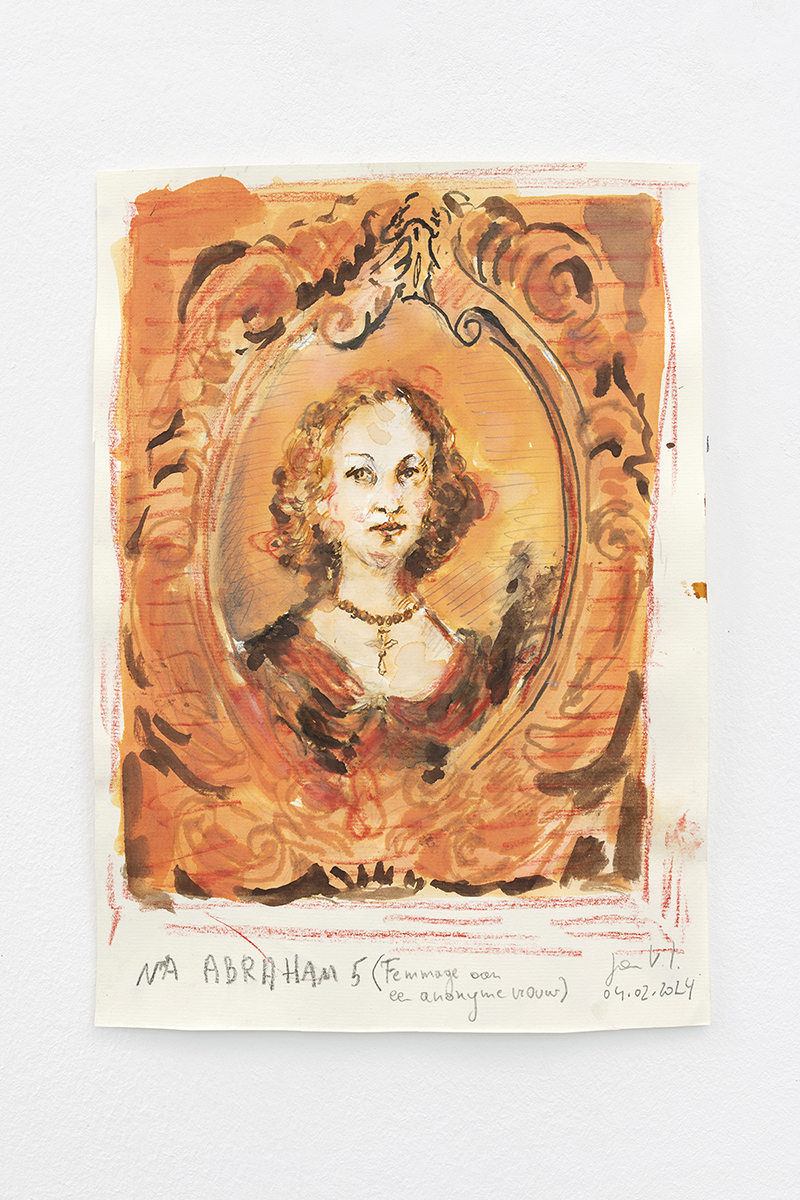 NA ABRAHAM 5 (Femmage aan
een anonyme vrouw)
Jan V.I.
04.02.2024